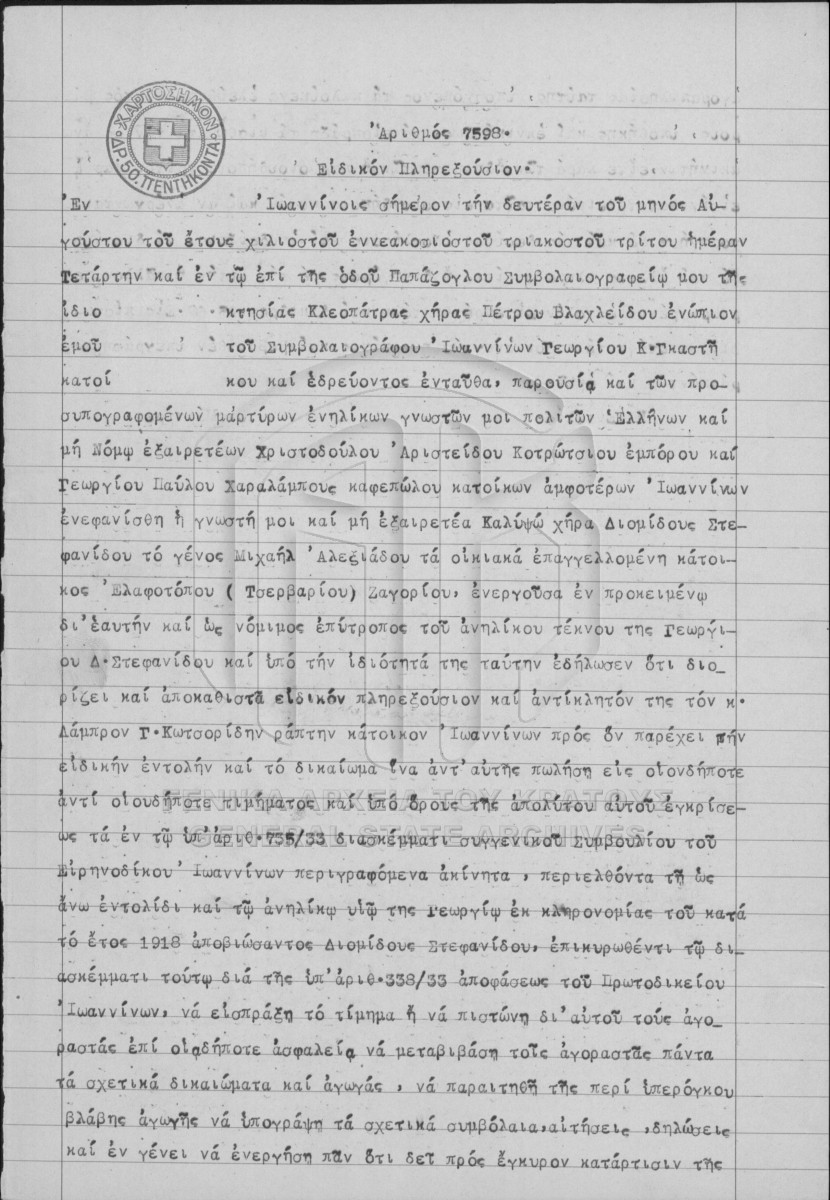 ΧΑΡΤΟΣΗΜΟΝ
ΔΡ. 50. ΠΕΝΤΗΚΟΝΤΑ
Ἀριθμός 7598.
Εἰδικόν Πληρεξούσιον.
Ἐν Ἰωαννίνοις σήμερον τήν δευτέραν τοῦ μηνός Αὐ-
γούστου τοῦ ἔτους χιλιοστοῦ ἐννεακοσιοστοῦ τριακοστοῦ τρίτου ἡμέραν
Τετάρτην καί ἐν τῷ ἐπί τῆς ὁδοῦ Παπάζογλου Συμβολαιογραφείῳ μου τῆς
ἰδιο κτησίας Κλεοπάτρας χήρας Πέτρου Βλαχλείδου ἐνώπιον
ἐμοῦ τοῦ Συμβολαιογράφου Ἰωαννίνων Γεωργίου Κ.Γκαστῆ
κατοί κου καί ἑδρεύοντος ἐνταῦθα, παρουσίᾳ καί τῶν προ-
συπογραφομένων μάρτύρων ἐνηλίκων γνωστῶν μοι πολιτῶν Ἑλλήνων καί
μή Νόμῳ ἐξαιρετέων Χριστοδούλου Ἀριστείδου Κοτρώτσιου ἐμπόρου καί
Γεωργίου Παύλου Χαραλάμπους καφεπώλου κατοίκων ἀμφοτέρων Ἰωαννίνων
ἐνεφανίσθη ἡ γνωστή μοι καί μή ἐξαιρετέα Καλυψώ χήρα Διομίδους Στε-
φανίδου τό γένος Μιχαήλ Ἀλεξιάδου τά οἰκιακά ἐπαγγελλομένη κάτοι-
κος Ἐλαφοτόπου ( Τσερβαρίου) Ζαγορίου, ἐνεργοῦσα ἐν προκειμένῳ
δι'ἑαυτήν καί ὡς νόμιμος ἐπίτροπος τοῦ ἀνηλίκου τέκνου της Γεωργί-
ου Δ.Στεφανίδου καί ὑπό τήν ἰδιότητά της ταύτην ἐδήλωσεν ὅτι διο-
ρίζει καί ἀποκαθιστᾶ εἰδικόν πληρεξούσιον καί ἀντίκλητόν της τόν κ.
Λάμπρον Γ.Κωτσορίδην ράπτην κάτοικον Ἰωαννίνων πρός ὅν παρέχει τήν
εἰδικήν ἐντολήν καί τό δικαίωμα ἵνα ἀντ'αὐτῆς πωλήση εἰς οἱονδήποτε
ἀντί οἱουδήποτε τιμήματος καί ὑπό ὅρους τῆς ἀπολύτου αὐτοῦ ἐγκρίσε-
ως τά ἐν τῷ ὑπ'ἀριθ.735/33 διασκέμματι συγγενικοῦ Συμβουλίου τοῦ
Εἰρηνοδίκου Ἰωαννίνων περιγραφόμενα ἀκίνητα, περιελθόντα τῇ ὡς
ἄνω ἐντολίδι καί τῷ ἀνηλίκῳ υἱῷ της Γεωργίῳ ἐκ κληρονομίας τοῦ κατά
τό ἔτος 1918 ἀποβιώσαντος Διομίδους Στεφανίδου, ἐπικυρωθέντι τῷ δι-
ασκέμματι τούτῳ διά τῆς ὑπ'ἀριθ.338/33 ἀποφάσεως τοῦ Πρωτοδικείου
Ἰωαννίνων, νά εἰσπράξη τό τίμημα ἤ νά πιστώνη δι'αὐτοῦ τούς ἀγο-
ραστάς ἐπί οἱᾳδήποτε ἀσφαλείᾳ νά μεταβιβάση τοῖς ἀγοραστᾶς πάντα
τά σχετικά δικαιώματα καί ἀγωγάς, νά παραιτηθῇ τῆς περί ὑπερόγκου
βλάβης ἀγωγῆς νά ὑπογράψη τά σχετικά συμβόλαια,αἰτήσεις ,δηλώσεις
καί ἐν γένει νά ἐνεργήση πᾶν ὅτι δεῖ πρός ἔγκυρον κατάρτισιν τῆς
ΓΕΝΙΚΑ ΑΡΧΕΙΑ ΤΟΥ ΚΡΑΤΟΥΣ
GENERAL STATE ARCHIVES